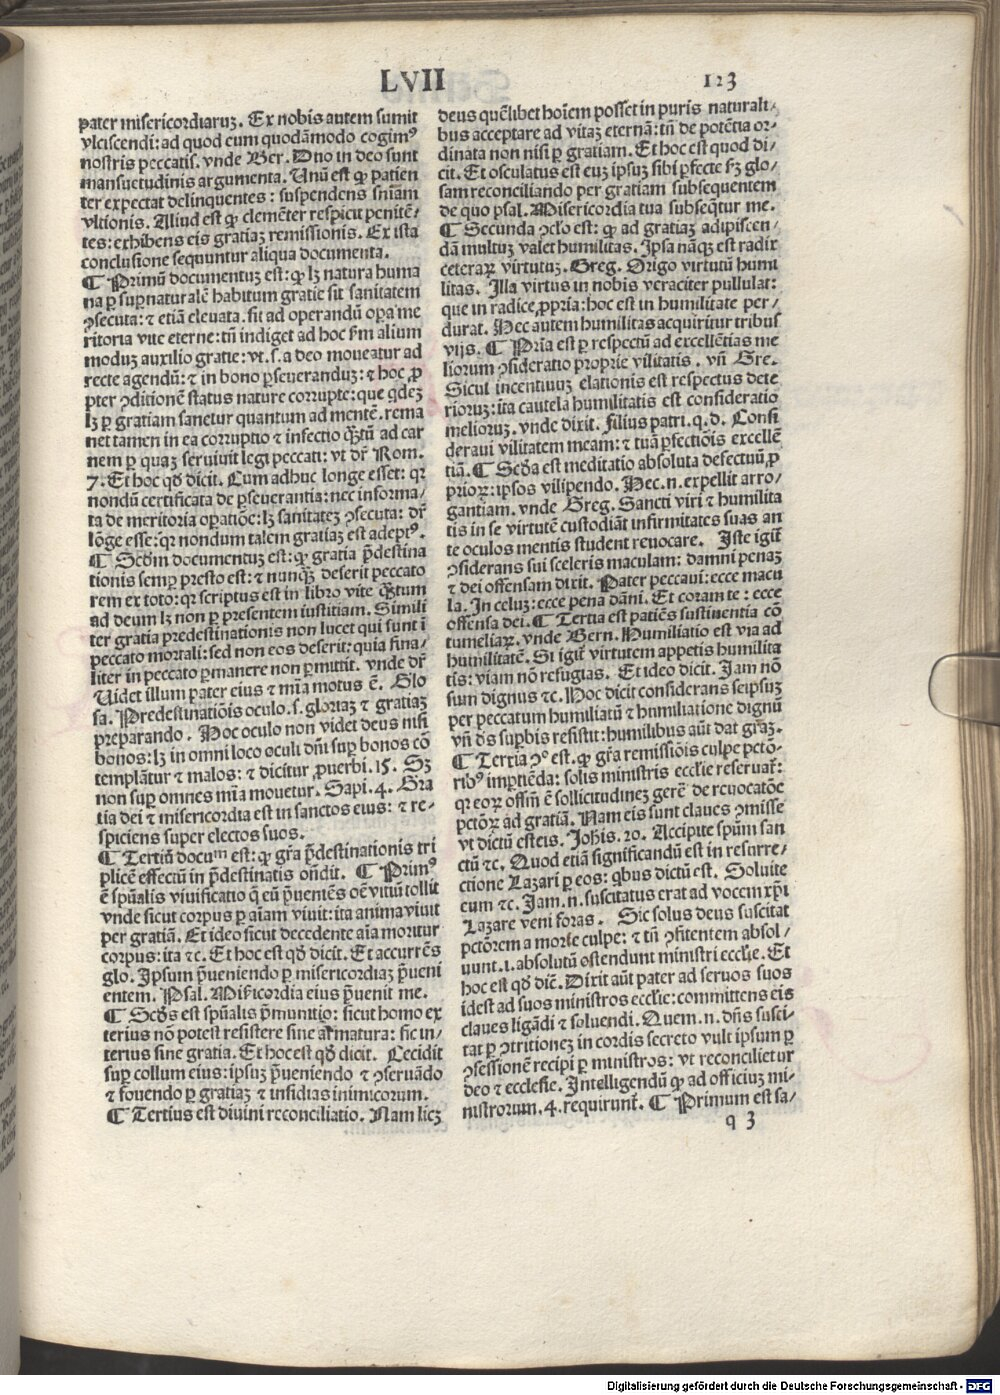 LVII
123
pater misericordiaruꝫ. Ex nobis autem sumit
vlciscendi: ad quod eum quodãmodo cogimꝰ
nostris peccatis. vnde Ber. Duo in deo sunt
mansuetudinis argumenta. Vnũ est ꝙ patien
ter expectat delinquentes: suspendens sñiam
vltionis. Aliud est ꝙ clemẽter respicit penitẽ⸗
tes: exhibens eis gratiaꝫ remissionis. Ex ista
conclusione sequuntur aliqua documenta.
¶ Primũ documentuꝫ est: ꝙ lꝫ natura huma
na ꝑ supnaturalẽ habitum gratie sit sanitatem
ꝯsecuta: ⁊ etiã eleuata. sit ad operandũ oꝑa me
ritoria vite eterne: tñ indiget ad hoc ẜm alium
moduꝫ auxilio gratie: vt .s. a deo moueatur ad
recte agendũ: ⁊ in bono ꝑseueranduꝫ: ⁊ hoc ꝓ
pter ꝯditionẽ status nature corrupte: que qdeꝫ
lꝫ ꝑ gratiam sanetur quantum ad mentẽ. rema
net tamen in ea corruptio ⁊ infectio qꝫtũ ad car
nem ꝑ quaꝫ seruiuit legi peccati: vt dr̃ Rom.
7. Et hoc qđ dicit. Cum adhuc longe esset: qr
nondũ certificata de ꝑseuerantia: nec informa⸗
ta de meritoria oꝑatiõe: lꝫ sanitateꝫ ꝯsecuta: dr̃
lõge esse: qr nondum talem gratiaꝫ est adeptꝰ.
¶ Scđm documentuꝫ est: ꝙ gratia p̃destina
tionis semꝑ presto est: ⁊ nunqꝫ deserit peccato
rem ex toto: qr scriptus est in libro vite qꝫtum
ad deum lꝫ non ꝑ presentem iustitiam. Simili
ter gratia predestinationis non lucet qui sunt ĩ
peccato mortali: sed non eos deserit: quia fina⸗
liter in peccato ꝑmanere non ꝑmittit. vnde dr̃
Uidet illum pater eius ⁊ mĩa motus ẽ. Glo
sa. Predestinatiõis oculo .s. gloriaꝫ ⁊ gratiaꝫ
preparando. Hoc oculo non videt deus nisi
bonos: lꝫ in omni loco oculi dñi suꝑ bonos cõ
templãtur ⁊ malos: ⁊ dicitur ꝓuerbi. 15. Sꝫ
non suꝑ omnes mĩa mouetur. Sapi. 4. Gra
tia dei ⁊ misericordia est in sanctos eius: ⁊ re⸗
spiciens super electos suos.
¶ Tertiũ documᵐ est: ꝙ gr̃a p̃destinationis tri
plicẽ effectũ in p̃destinatis oñdit. ¶ Primꝰ
ẽ spũalis viuificatio q̃ eũ p̃ueniẽs oẽ vitiũ tollit
vnde sicut corpus ꝑ aĩam viuit: ita anima viuit
per gratiã. Et ideo sicut decedente aĩa moritur
corpus: ita ⁊c. Et hoc est qđ dicit. Et accurrẽs
glo. Ipsum p̃ueniendo ꝑ misericordiaꝫ p̃ueni
entem. Psal. Mis̃icordia eius p̃uenit me.
¶ Scđs est spũalis p̃munitio: sicut homo ex
terius nõ potest resistere sine armatura: sic in⸗
terius sine gratia. Et hoc est qđ dicit. Cecidit
suꝑ collum eius: ipsuꝫ p̃ueniendo ⁊ ꝯseruãdo
⁊ fouendo ꝑ gratiaꝫ ⁊ insidias inimicorum.
¶ Tertius est diuini reconciliatio. Nam licꝫ
deus quẽlibet hoĩem posset in puris naturali⸗
bus acceptare ad vitaꝫ eternã: tñ de potẽtia or⸗
dinata non nisi ꝑ gratiam. Et hoc est quod di⸗
cit. Et osculatus est euꝫ ipsuꝫ sibi ꝑfecte ẜꝫ glo⸗
sam reconciliando per gratiam subsequentem
de quo psal. Misericordia tua subseq̃tur me.
¶ Secunda ꝯclo est: ꝙ ad gratiaꝫ adipiscen⸗
dã multuꝫ valet humilitas. Ipsa nãqꝫ est radix
ceteraꝝ virtutuꝫ. Greg. Origo virtutũ humi
litas. Illa virtus in nobis veraciter pullulat:
que in radice ꝓpria: hoc est in humilitate per⸗
durat. Hec autem humilitas acquiritur tribus
vijs. ¶ Pria est ꝑ respectũ ad excellẽtias me
liorum ꝯsideratio proprie vilitatis. vñ Gre.
Sicut incentiuuꝫ elationis est respectus dete
rioruꝫ: ita cautela humilitatis est consideratio
melioruꝫ. vnde dixit. filius patri. q.d. Consi
deraui vilitatem meam: ⁊ tuã ꝑfectiõis excellẽ
tiã. ¶ Scđa est meditatio absoluta defectuũ ꝓ
prioꝝ: ipsos vilipendo. Hec .n. expellit arro⸗
gantiam. vnde Greg. Sancti viri ⁊ humilita
tis in se virtutẽ custodiãt infirmitates suas an
te oculos mentis student reuocare. Iste igit̃
ꝯsiderans sui sceleris maculam: damni penaꝫ
⁊ dei offensam dixit. Pater peccaui: ecce macu
la. In celuꝫ: ecce pena dãni. Et coram te: ecce
offensa dei. ¶ Tertia est patiẽs sustinentia cõ
tumeliaꝝ. vnde Bern. Humiliatio est via ad
humilitatẽ. Si igit̃ virtutem appetis humilita
tis: viam nõ refugias. Et ideo dicit. Iam nõ
sum dignus ⁊c. Hoc dicit considerans seipsuꝫ
per peccatum humiliatũ ⁊ humiliatione dignũ
vñ d̃s suꝑbis resistit: humilibus aũt dat gr̃aꝫ.
¶ Tertia ꝯº est. ꝙ gr̃a remissiõis culpe pctõ⸗
ribꝰ imꝑtiẽda: solis ministris ecclie reseruat̃:
qr eoꝝ offm̃ ẽ sollicitudineꝫ gerẽ de reuocatõe
pctõꝝ ad gratiã. Nam eis sunt claues ꝯmisse
vt dictũ est eis. Johis. 20. Accipite spũm san
ctũ ⁊c. Quod etiã significandũ est in resurre⸗
ctione Lazari ꝑ eos: qbus dictũ est. Soluite
eum ⁊c. Jam .n. suscitatus erat ad vocem xp̃i
Lazare veni foras. Sic solus deus suscitat
pctõrem a morte culpe: ⁊ tñ ꝯfitentem absol⸗
uunt .i. absolutũ ostendunt ministri ecclie. Et
hoc est qđ diẽ. Dixit aũt pater ad seruos suos
idest ad suos ministros ecclie: committens eis
claues ligãdi ⁊ soluendi. Quem .n. dñs susci⸗
tat ꝑ ꝯtritioneꝫ in cordis secreto vult ipsum ꝑ
ꝯfessionẽ recipi ꝑ ministros: vt reconcilietur
deo ⁊ ecclesie. Intelligendũ ꝙ ad officiuꝫ mi⸗
nistrorum. 4. requirunt̃. ¶ Primum est sa⸗
q 3
Digitalisierung gefördert durch die Deutsche Forschungsgemeinschaft - DFG